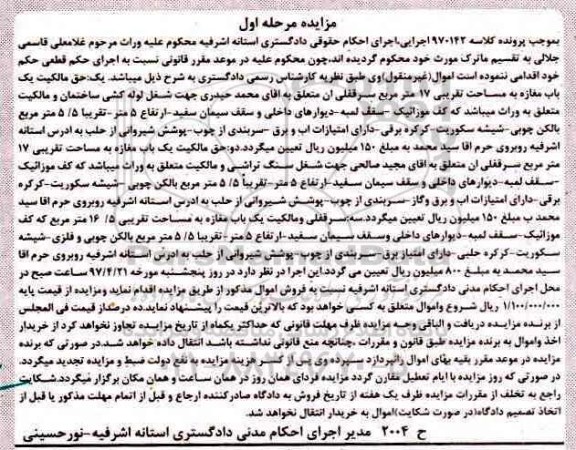 مزایده مرحله اول
بموجب پرونده کلاسه ۹۷۰۱۴۲ اجرایی،اجرای احکام حقوقی دادگستری استانه اشرفیه محکوم علیه وراث مرحوم غلامعلی قاسمی
جلالی به تقسیم ماترک مورث خود محکوم گردیده اند،چون محکوم علیه در موعد مقرر قانونی نسبت به اجرای حکم قطعی حکم
خود اقدامی ننموده است اموال(غیرمنقول)وی طبق نظریه کارشناس رسمی دادگستری به شرح ذیل میباشد. یک:حق مالکیت یک
باب مغازه به مساحت تقریبی ۱۷ متر مربع سرقفلی ان متعلق به اقای محمد حیدری جهت شغل لوله کشی ساختمان و مالکیت
متعلق به وراث میباشد که کف موزائیک- سقف لمبه-دیوارهای داخلی و سقف سیمان سفید-ارتفاع ۵ متر -تقریبا ۵/ ۵ متر مربع
بالکن چوبی-شیشه سکوریت-کرکره برقی-دارای امتیازات اب و برق -سربندی از چوب-پوشش شیروانی از حلب به ادرس استانه
اشرفیه روبروی حرم اقا سید محمد به مبلغ ۱۵۰ میلیون ریال تعیین میگردد.دو:حق مالکیت یک باب مغازه به مساحت تقریبی ۱۷
متر مربع سرقفلی ان متعلق به اقای مجید صالحی جهت شغل سنگ تراشی و مالکیت متعلق به وراث میباشد که کف موزائیک
-سقف لمبه-دیوارهای داخلی و سقف سیمان سفید-ارتفاع ۵ متر-تقریبا ۵/ ۵ متر مربع بالکن چوبی -شیشه سکوریت-کرکره
برقی-دارای امتیازات اب و برق وگاز -سربندی از چوب-پوشش شیروانی از حلب به ادرس استانه اشرفیه روبروی حرم اقا سید
محمد ب مبلغ ۱۵۰ میلیون ریال تعیین میگردد.سه:سرقفلی ومالکیت یک باب مغازه به مساحت تقریبی ۵/ ۱۶ متر مربع که کف
موزائیک-سقف لمبه-دیوارهای داخلی وسقف سیمان سفید-ارتفاع ۵ متر- تقریبا ۵/ ۵ متر مربع بالکن چوبی و فلزی-شیشه
سکوریت-کرکره حلبی-دارای امتیاز برق -سربندی از چوب- پوشش شیروانی از حلب به ادرس استانه اشرفیه روبروی حرم اقا
سید محمد به مبلغ ۸۰۰ میلیون ریال تعیین می گردد.این اجرا در نظر دارد در روز پنجشنبه مورخه ۹۷/۴/۲۱ ساعت صبح در
محل اجرای احکام مدنی دادگستری استانه اشرفیه نسبت به فروش اموال مذکور از طریق مزایده اقدام نماید ومزایده از قیمت پایه
۱/۱۰۰/۰۰۰/۰۰۰ ریال شروع واموال متعلق به کسی خواهد بود که بالاترین قیمت را پیشنهاد نماید.ده درصداز قیمت فی المجلس
از برنده مزایده دریافت و الباقی وجه مزایده ظرف مهلت قانونی که حداکثر یکماه از تاریخ مزایده تجاوز نخواهد کرد از خریدار
اخذ واموال به برنده مزایده طبق قانون و مقررات ،چنانچه منع قانونی نداشته باشد انتقال داده خواهد شد.در صورتی که برنده
مزایده در موعد مقرر بقیه بهای اموال رانپردازد سپرده وی پس از کسر هزینه مزایده به نفع دولت ضبط و مزایده تجدید میگردد.
در صورتی که روز مزایده با ایام تعطیل مقارن گردد مزایده فردای همان روز در همان ساعت و همان مکان برگزار میگردد.شکایت
راجع به تخلف از مقررات مزایده ظرف یک هفته از تاریخ فروش به دادگاه صادرکننده ارجاع و قبل از اتمام مهلت مذکور یا قبل از
اتخاذ تصمیم دادگاه(در صورت شکایت)اموال به خریدار انتقال نخواهد شد.
ح ۲۰۰۴ مدیر اجرای احکام مدنی دادگستری استانه اشرفیه-نورحسینی